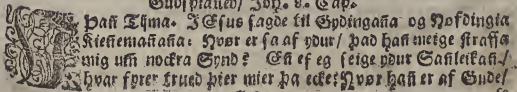 Guðspialled/ Joh. 8. Cap.
Þañ Tijma. JEsus sagde til Gydingaña og Hofdingia
Kieñemañaña: Hvør er sa af ydur/ þad hañ meige straffa
mig um̃ nockra Synd? Eñ ef eg seige ydur Sañleikañ/
hvar fyrer trued þier mier þa ecke? Hvør hañ er af Gude/